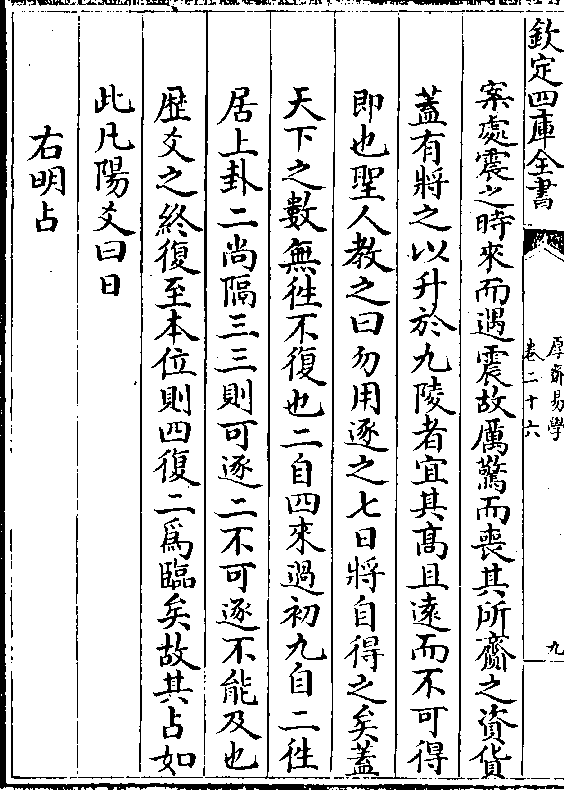 欽定四庫全書
厚齋易學
卷二十六
九
案處震之時來而遇震故厲驚而喪其所齎之資貨
蓋有將之以升於九陵者宜其髙且遠而不可得
即也聖人教之曰勿用逐之七日將自得之矣蓋
天下之數無徃不復也二自四來過初九自二徃
居上卦二尚隔三三則可逐二不可逐不能及也
歴爻之終復至本位則四復二爲臨矣故其占如
此凡陽爻曰日
右明占